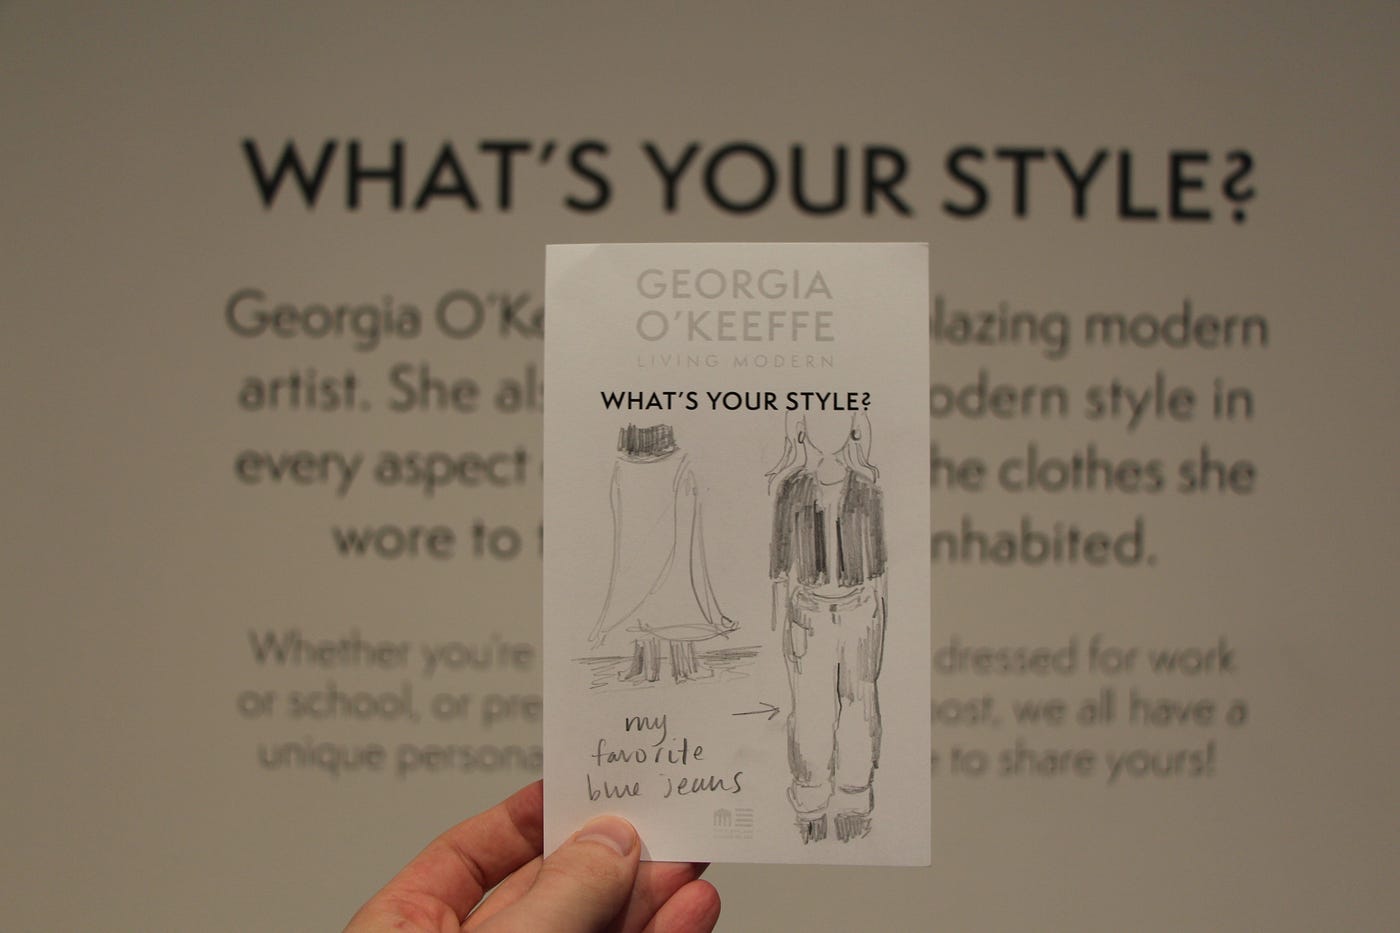 WHAT'S YOUR STYLE?
Georgia O'Ke lazing modern
artist. She als odern style in
every aspect he clothes she
wore to t nhabited.
Whether you're dressed for work
or school, or pre ost, we all have a
unique persona e to share yours!
GEORGIA
O'KEEFFE
LIVING MODERN
WHAT'S YOUR STYLE?
my
favorite
blue jeans